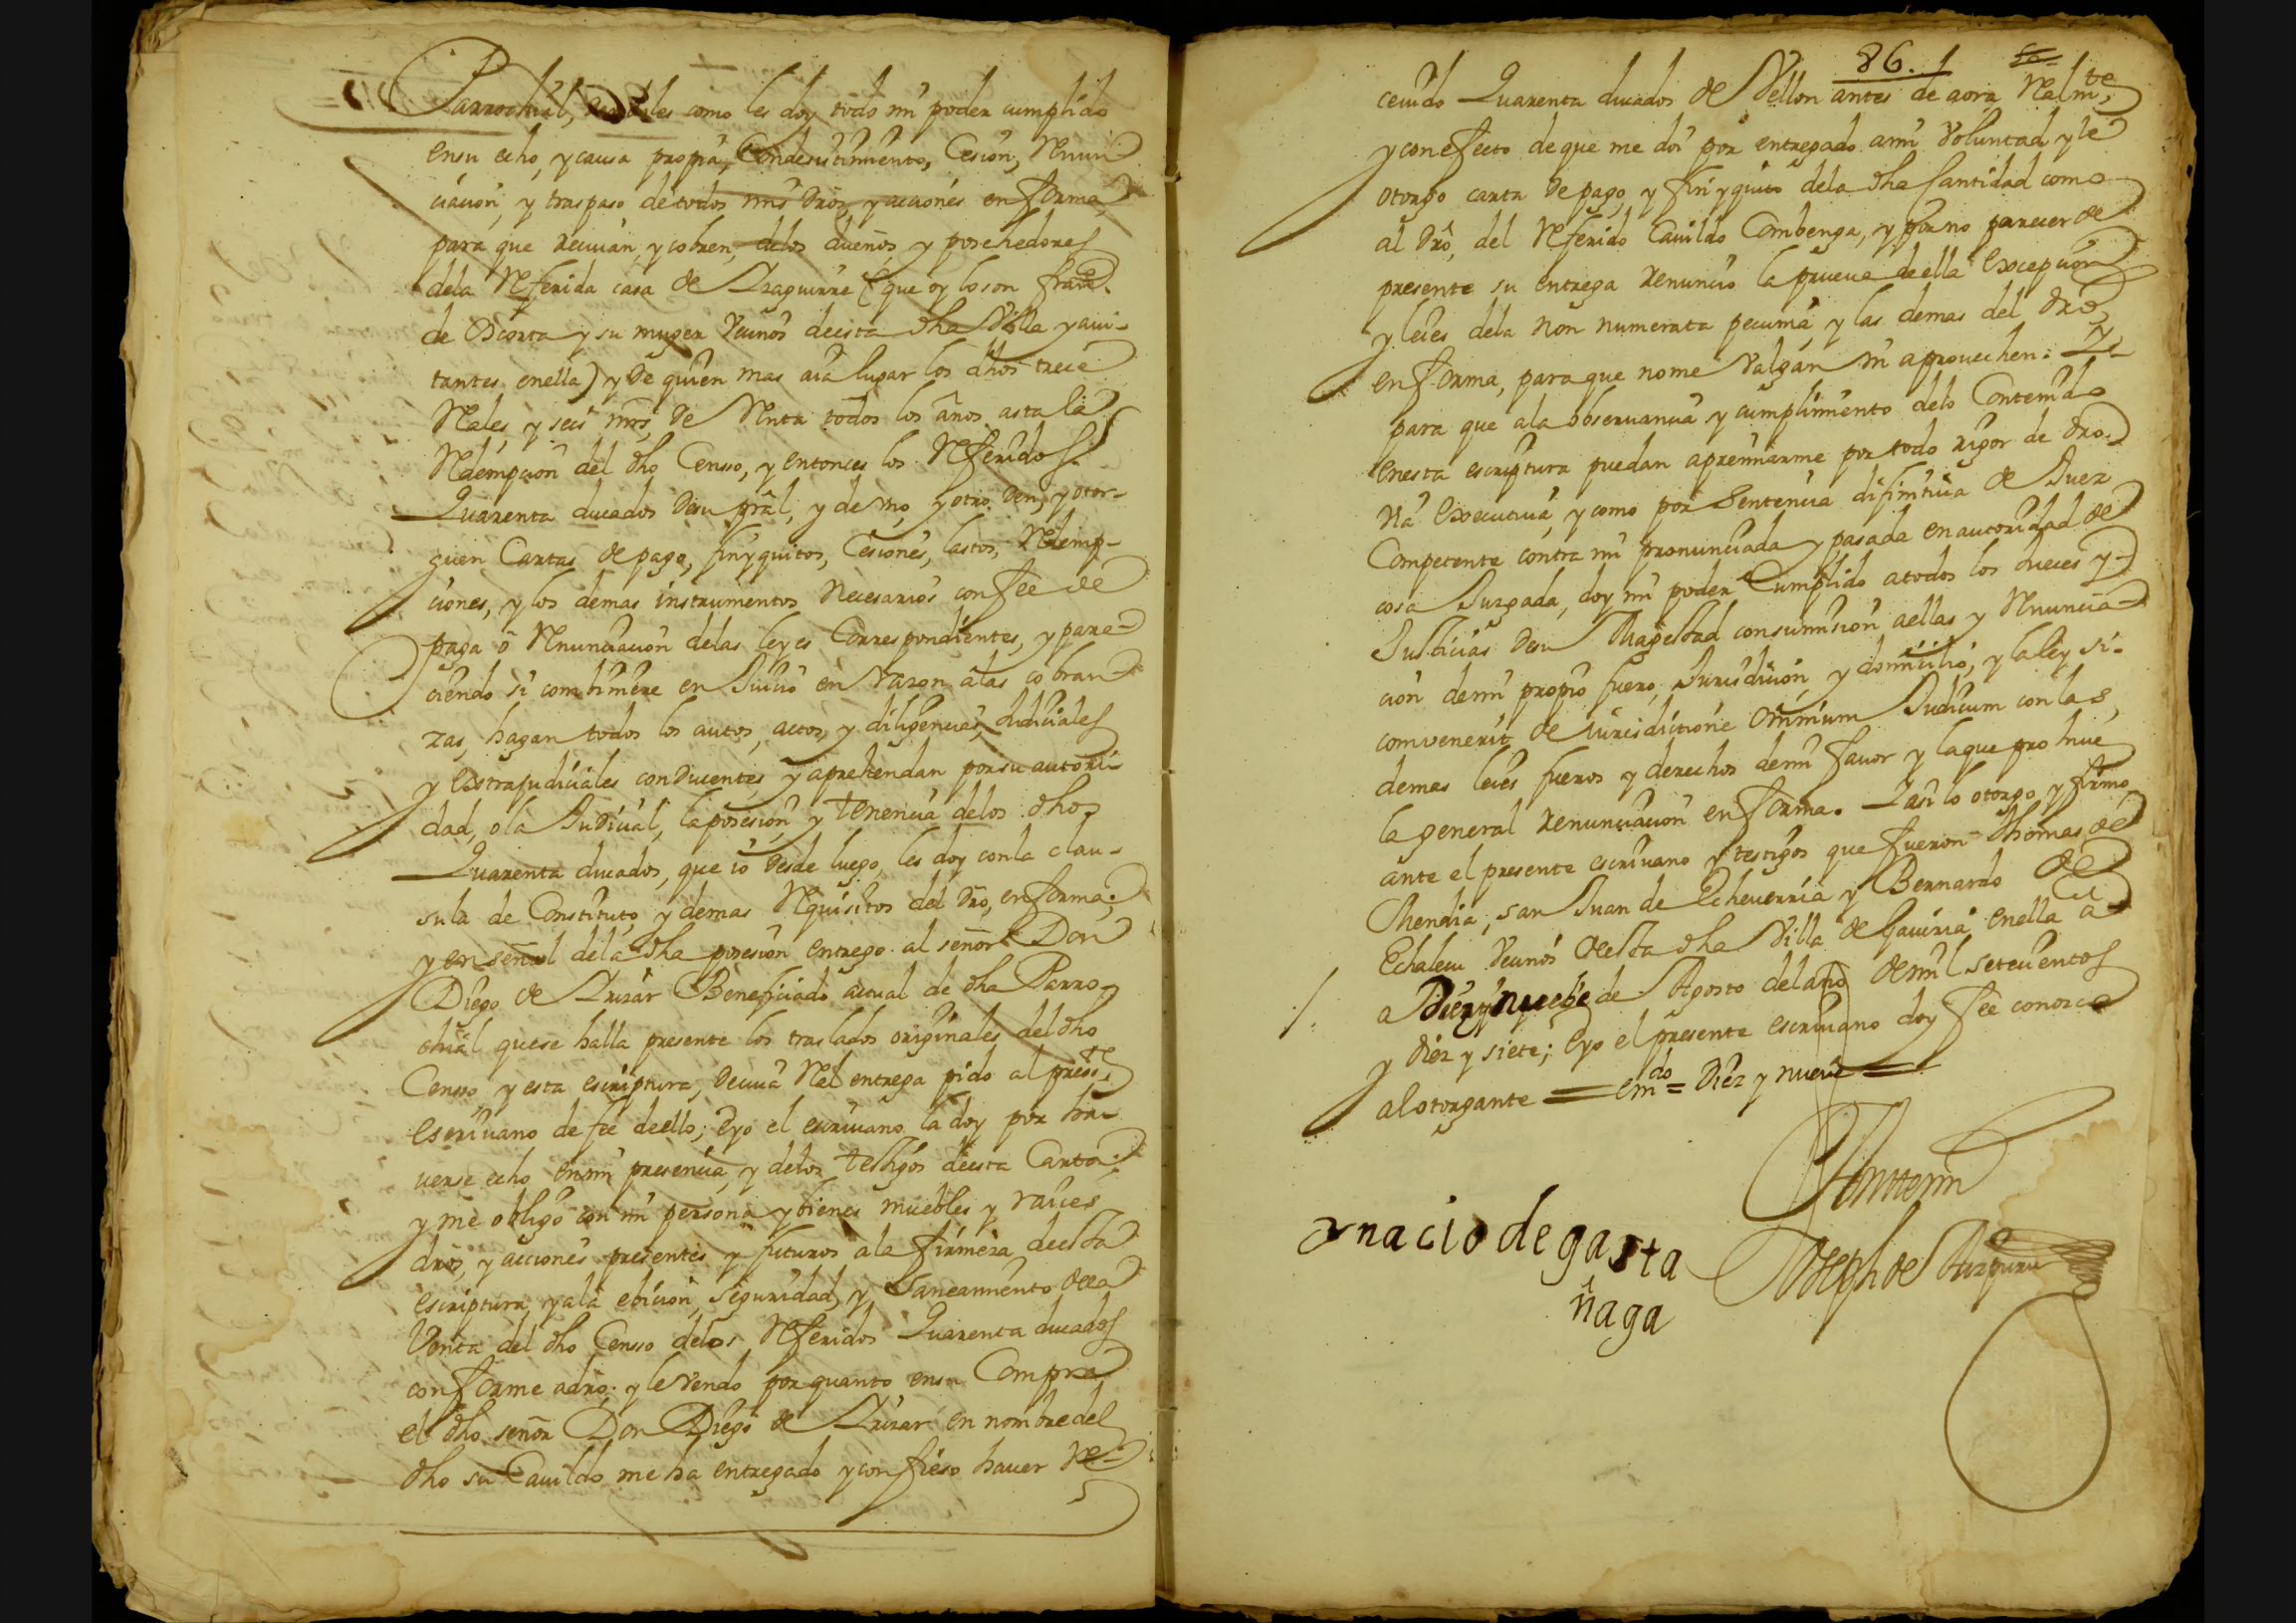 Parrochial, dandoles como les doy todo mi poder cumplido
ensu echo, y causa propia, Condesistimiento, Cesion, Renun
ciacion, y traspaso detodos mis dros, y acciones en forma,
para que reciuan, y cobren, delos dueños, y posehedores
dela Referida casa de Araguirre (que oy loson franco.
de Ascorta y su muger Vecinos deesta dha Villa y aui-
tantes enella) y de quien mas aia lugar los dhos trece
Reales, y seis mrs, de Renta todos los años asta la
Redempcion del dho Censso, y entonces los Referidos
Quarenta ducados desu pral, y de vno, y otro den, y otor-
guen Cartas de pago, finyquitos, Cesiones, lastos, Redemp-
ciones, y los demas instrumentos Necesarios con fee de
paga ô Renunciacion delas leyes Correspondientes, y pare-
ciendo si combiniere en Juicio en Razon alas cobran-
zas, hagan todos los autos, actos, y diligencias Judiciales
y extrajudiciales conducentes, y aprehendan porsu autori-
dad, o la Judicial, la posesion, y tenencia delos dhos
Quarenta ducados, que io desde luego, les doy conla clau-
sula de Constituto, y demas Requisitos del dro, en forma;
y en señal dela dha posesion entrego al señor Don
Diego de Arizar Beneficiado actual de dha Parro-
chial quese halla presente los traslados originales del dho
Censso y esta escriptura, decuia Real entrega pido al preste,
escriuano de fee deello; Eyo el escriuano la doy por ha-
uerse echo enmi presencia, y delos testigos deesta Carta;
y me obligo con mi persona y bienes muebles y raices
dros, y acciones presentes y futuros ala firmeza deesta
escriptura, y ala ebicion, Siguridad, y Saneamiento dela
Venta del dho Censso delos Referidos Quarenta ducados
conforme adro; y le vendo por quanto ensu Compra
el dho señor Don Diego de Arizar en nombre del
dho su Cauildo me ha entregado y confieso hauer Re-
86.
ceuido Quarenta ducados de Vellon antes de aora Realmte,
y con efecto de que me doi por entregado ami Voluntad y le
otorgo carta de pago, y finyquito dela dha Cantidad como
al dro, del Referido Cauildo Combenga, y por no parecer de
presente su entrega Renuncio la prueua deella Excepcion
y leies dela non numerata pecunia y las demas del dro,
en forma, para que nome Valgan ni aprouechen: Y
para que ala obseruancia y cumplimiento delo Contenido
enesta escriptura puedan apremiarme por todo rigor de dro,
via Executiua, y como por Sentencia difinitiua de Juez
Competente contra mi pronunciada y pasada en autoridad de
cosa Juzgada, doy mi poder Cumplido a todos los Jueces y
Justicias desu Magestad consumision aellas y Renuncia-
cion demi propio fuero, Jurisdicion, y domicilio, y la ley si-
convenerit de iurisdictione Omnium Judicum con las
demas leies fueros y derechos demi fauor y laque prohiue
la general renunciacion en forma. Yasi lo otorgo, y firmo
ante el presente escriuano y testigos que fueron Thomas de
Mendia, san Juan de Echeuerria y Bernardo de
Echalecu Vecinos deesta dha Villa de Gauiria enella a
a Diez y nuebe de Agosto del año demil setecientos
y diez y siete; Eyo el presente escriuano doy fee conozco
al otorgante = emdo = Diez y nueve =
Ynacio de gasta
ñaga
Ante mi
Joseph de